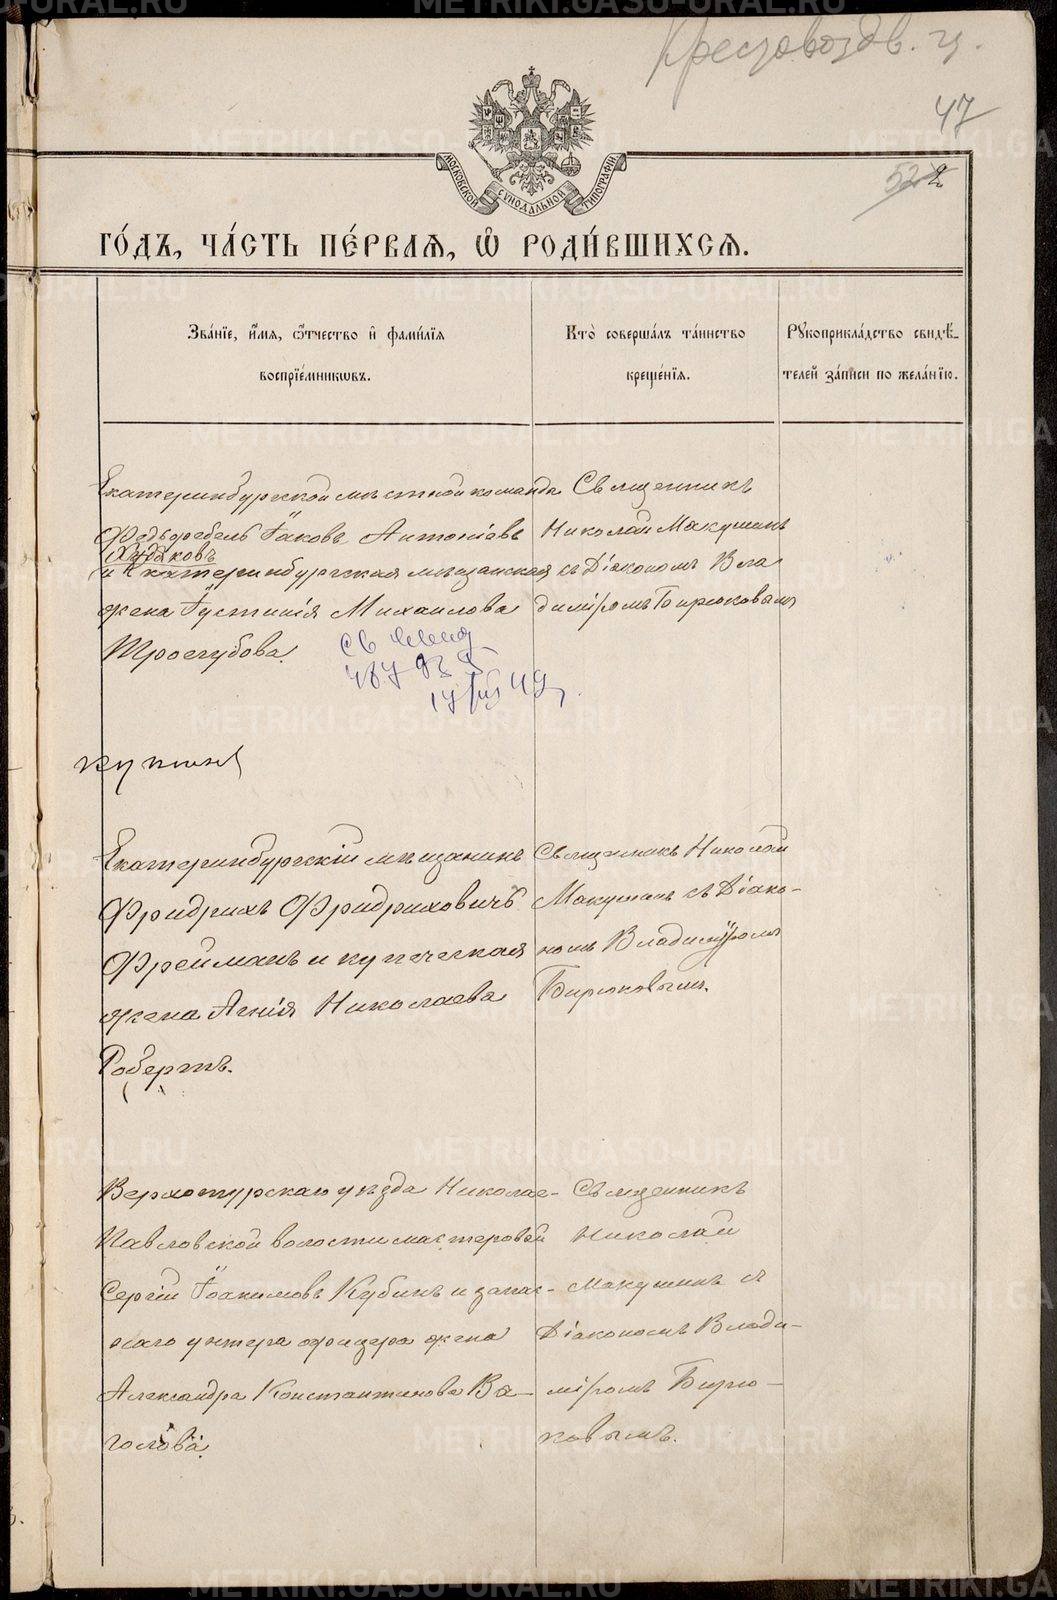 Крестовоздв. ц.
47
522
МОСКОВСКОЙ СУНОДАЛЬНОЙ ТИПОГРАФІИ
ГО́ДЪ, ЧА́СТЬ ПЕ́РВАѦ, Ѽ РОДИ́ВШИХСѦ.
Зва́нїе, и҆́мѧ, ѻ҆́тчество и҆ фами́лїѧ
воспрїе́мникѡвъ.
Кто̀ соверша́лъ та́инство
креще́нїѧ.
Рꙋкоприкла́дство свидѣ́-
телей за́писи по жела́нїю.
Екатеринбургской мѣстной команды
Фельдфебель Іаковъ Антоніевъ
Худяковъ
и Екатеринбургская мѣщанская
жена Іустинія Михаилова
Троегубова.
Священникъ
Николай Макушинъ
съ Діакономъ Вла
диміромъ Бирюковымъ
49
Екатеринбургскій мѣщанинъ
Фридрихъ Фридриховичъ
Фрейманъ и купеческая
жена Агнія Николаева
Робертъ.
Священникъ Николай
Макушинъ съ Діако-
номъ Владиміромъ
Бирюковымъ.
Верхотурскаго уѣзда Николае-
Павловской волости мастеровой
Сергій Іоакимовъ Кубинъ и запас-
наго унтеръ офицера жена
Александра Константинова Ва-
голова.
Священникъ
Николай
Макушинъ съ
Діакономъ Влади-
міромъ Бирю-
ковымъ.
METRIKI.GASO-URAL.RU